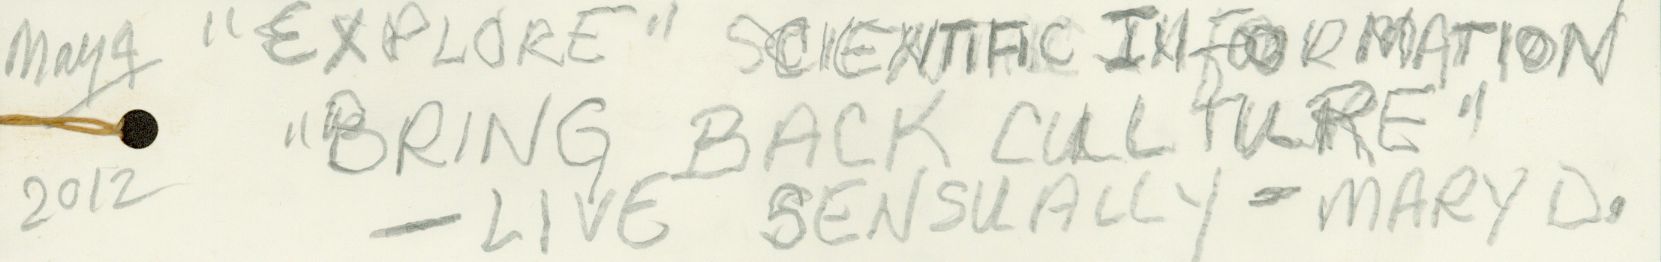 May 4 "EXPLORE" SCIENTIFIC INFORMATION
"BRING BACK CULLTURE"
2012 — LIVE SENSUALLY - MARY D.